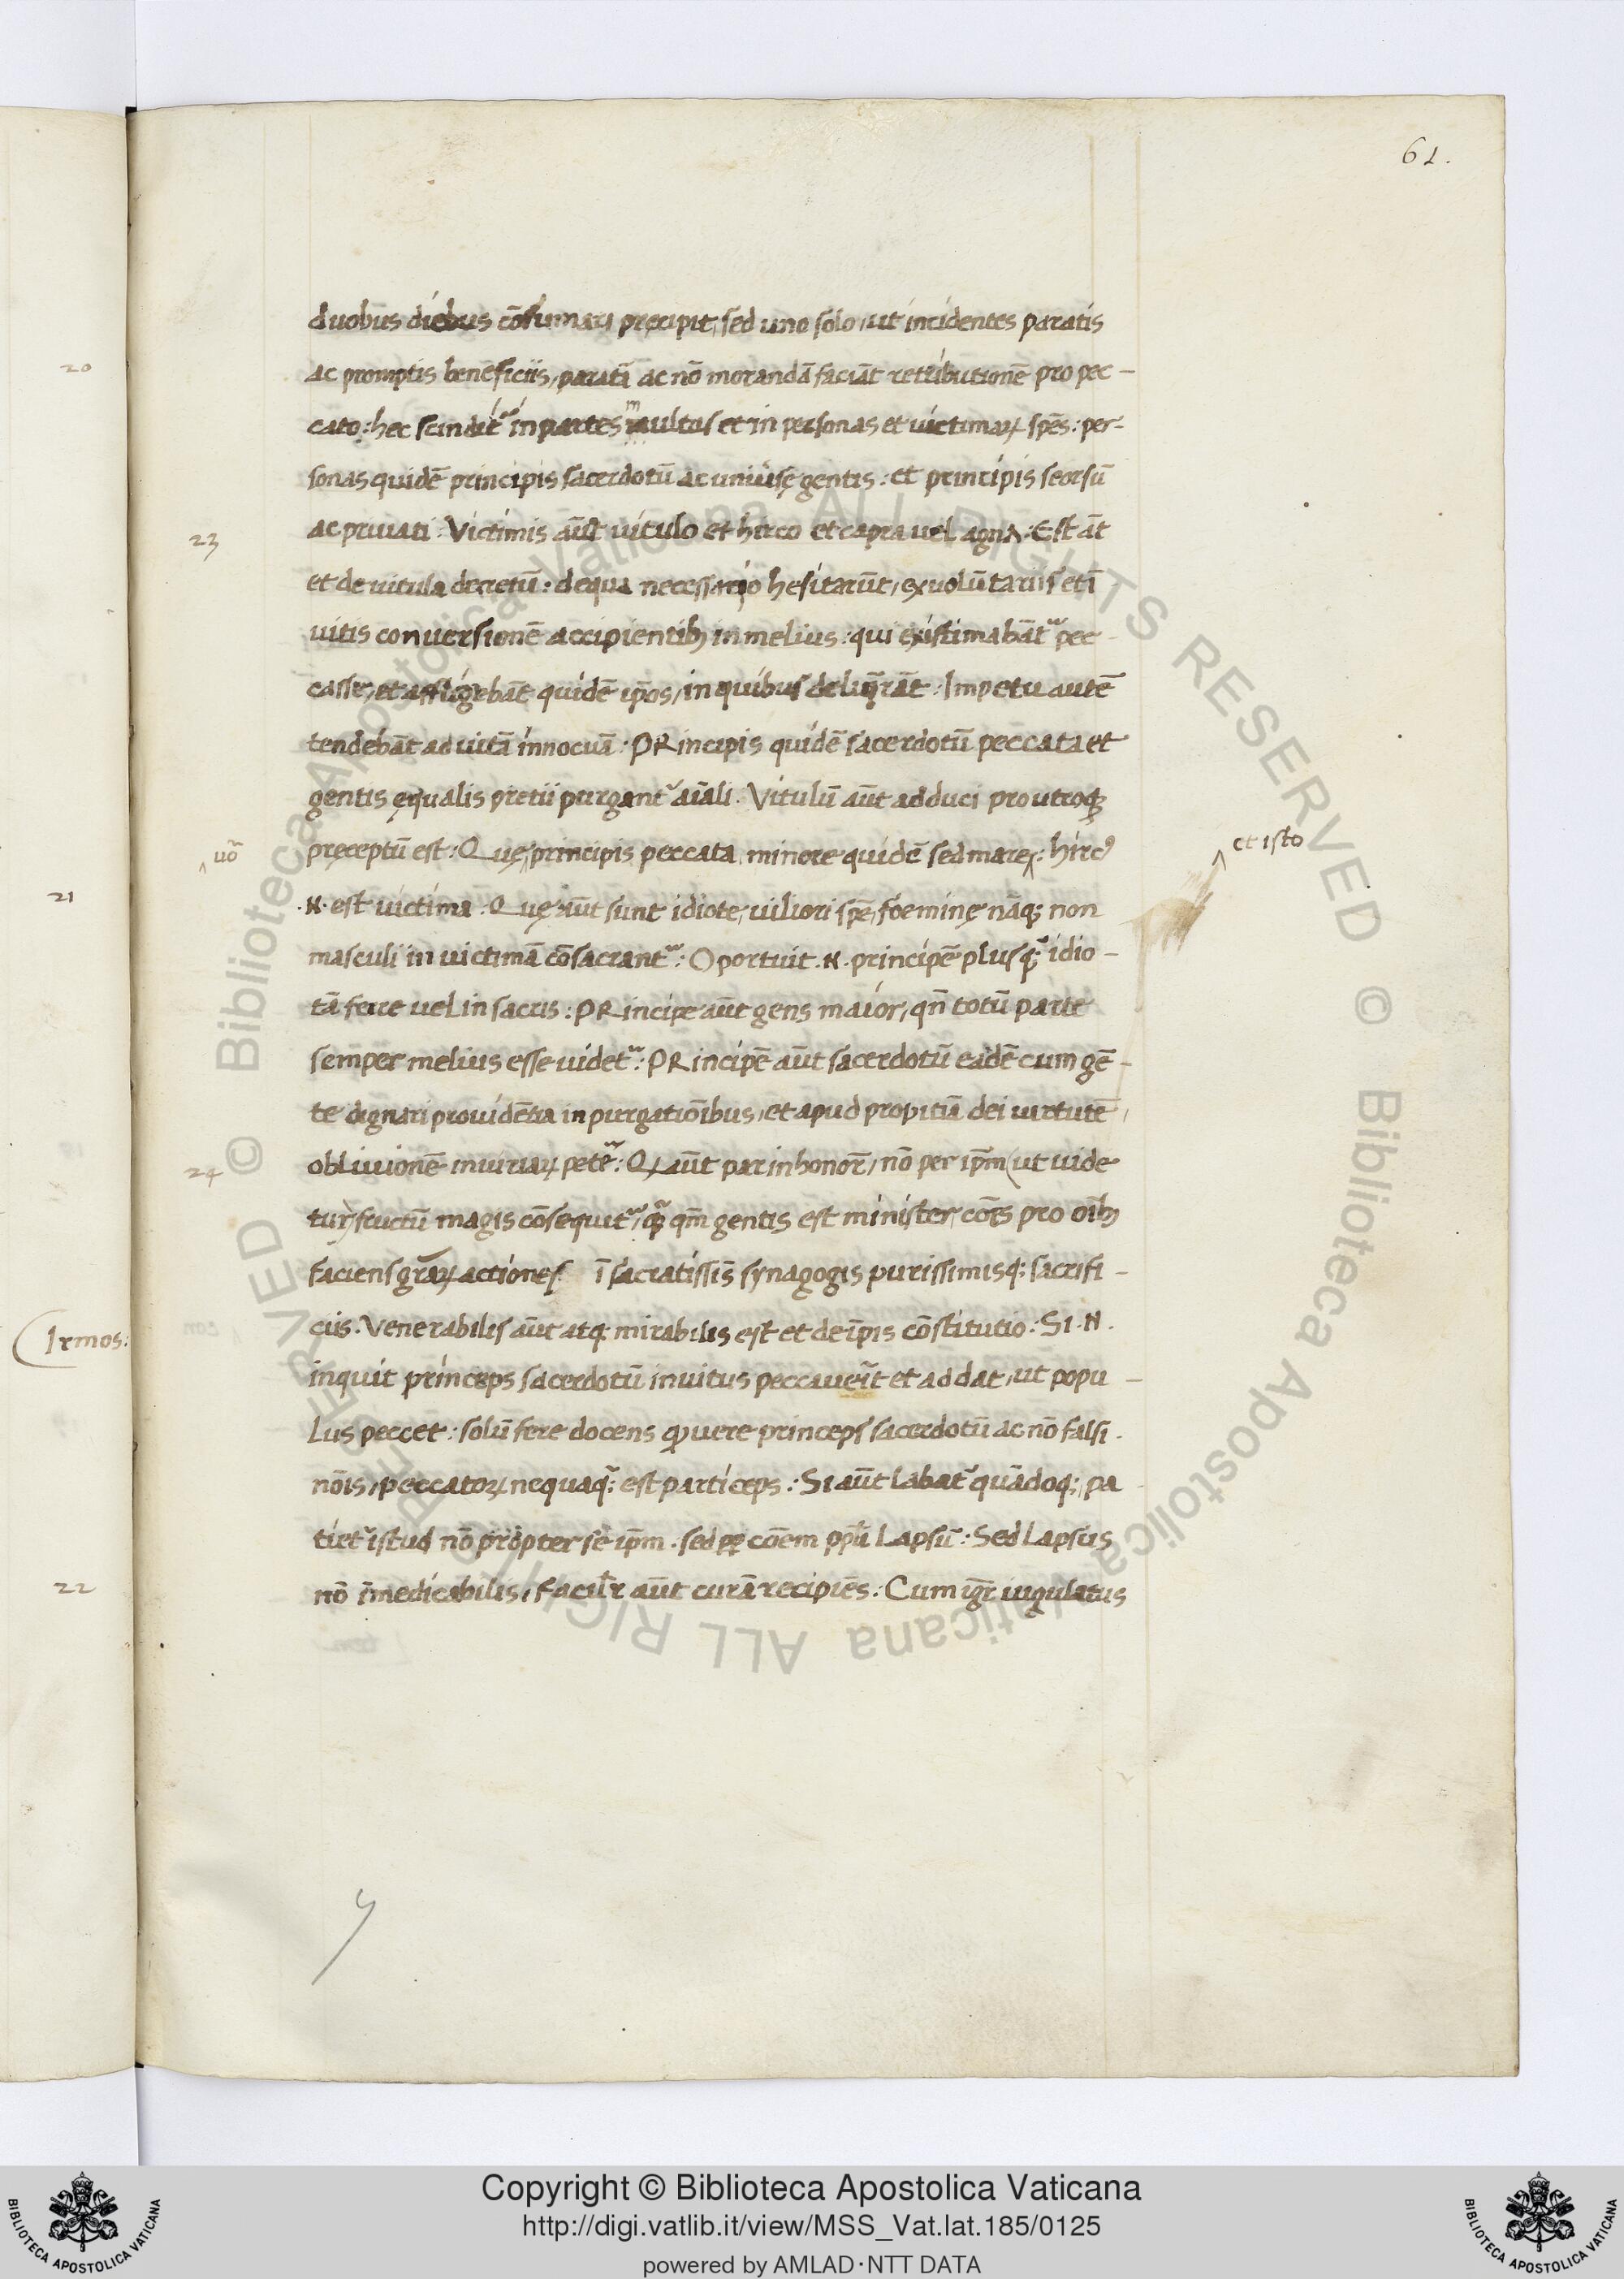 61.
duobus diebus cōsumari pręcipit, sed uno solo, ut incidentes paratis
ac promptis beneficiis, paratā ac nō morandā faciāt retributionē pro pec-
cato: hec scindit᷑ in partes multas et in personas et uictimaꝝ spēs: per-
sonas quidē principis sacerdotū ac uniuersę gentis: et principis seorsū
23
ac priuati: Victimis aūt uitulo et hirco et capra uel agna: Est āt
et de uitula decretū: de qua necessario hesitarūt, ex uolūtariis etī
uitis conuersionē accipientibꝫ in melius: qui existimabāt᷑ pec
casse, et affligebāt quidē ip̄os, in quibus deliq̄rāt: Impetu autē
tendebāt ad uitā innocuā: PRincipis quidē sacerdotū peccata et
gentis ęqualis pretii purgant᷑ aīali. Vitulū aūt adduci pro utroqꝫ
uō
pręceptū est: Quę principis peccata minore quidē sed mare: hircꝰ
et isto
.N. est uictima: Quę aūt sunt idiote, uiliori spē, foeminę nāqꝫ non
masculi in uictimā cōsacrant᷑: Oportuit .N. principē plusq̄ꝫ idio-
tā ferre uel in sacris: PRincipe aūt gens maior, qn̄ totū parte
semper melius esse uidet᷑: PRincipē aūt sacerdotū eādē cum gē-
te dignari prouidētia in purgatiōibus, et apud propitiā dei uirtutē
24
obliuionē iniuriaꝝ petē᷑: Qꝝ aūt par in honor̄, nō per ip̄m (ut uide
tur) fructū magis cōsequit᷑, qꝫ qm̄ gentis est minister, cōēs pro oībꝫ
faciens grāꝝ actiones ī sacratissīs synagogis purissimisqꝫ sacrifi-
ciis. Venerabilis aūt atqꝫ mirabilis est et de ip̄is cōstitutio: SI .N.
inquit princeps sacerdotū inuitus peccauerīt et addat, ut popu-
lus peccet: solū fere docens ꝙ uere princeps sacerdotū ac nō falsi
nōis, peccatoꝝ nequaq̄ꝫ est particeps: Si aūt labat᷑ quādoqꝫ, pa
tiet᷑ istud nō propter se ip̄m. sed ꝓp cōem ppl̄i lapsū: Sed lapsus
nō īmedicabilis, facilr̄ aūt curā recipiēs: Cum igr̄ iugulatus
20
21
Irmos:
22
Copyright © Biblioteca Apostolica Vaticana
http://digi.vatlib.it/view/MSS_Vat.lat.185/0125
powered by AMLAD·NTT DATA
BIBLIOTECA APOSTOLICA VATICANA
BIBLIOTECA APOSTOLICA VATICANA
© Biblioteca Apostolica Vaticana ALL RIGHTS RESERVED © Biblioteca Apostolica Vaticana ALL RIGHTS RESERVED